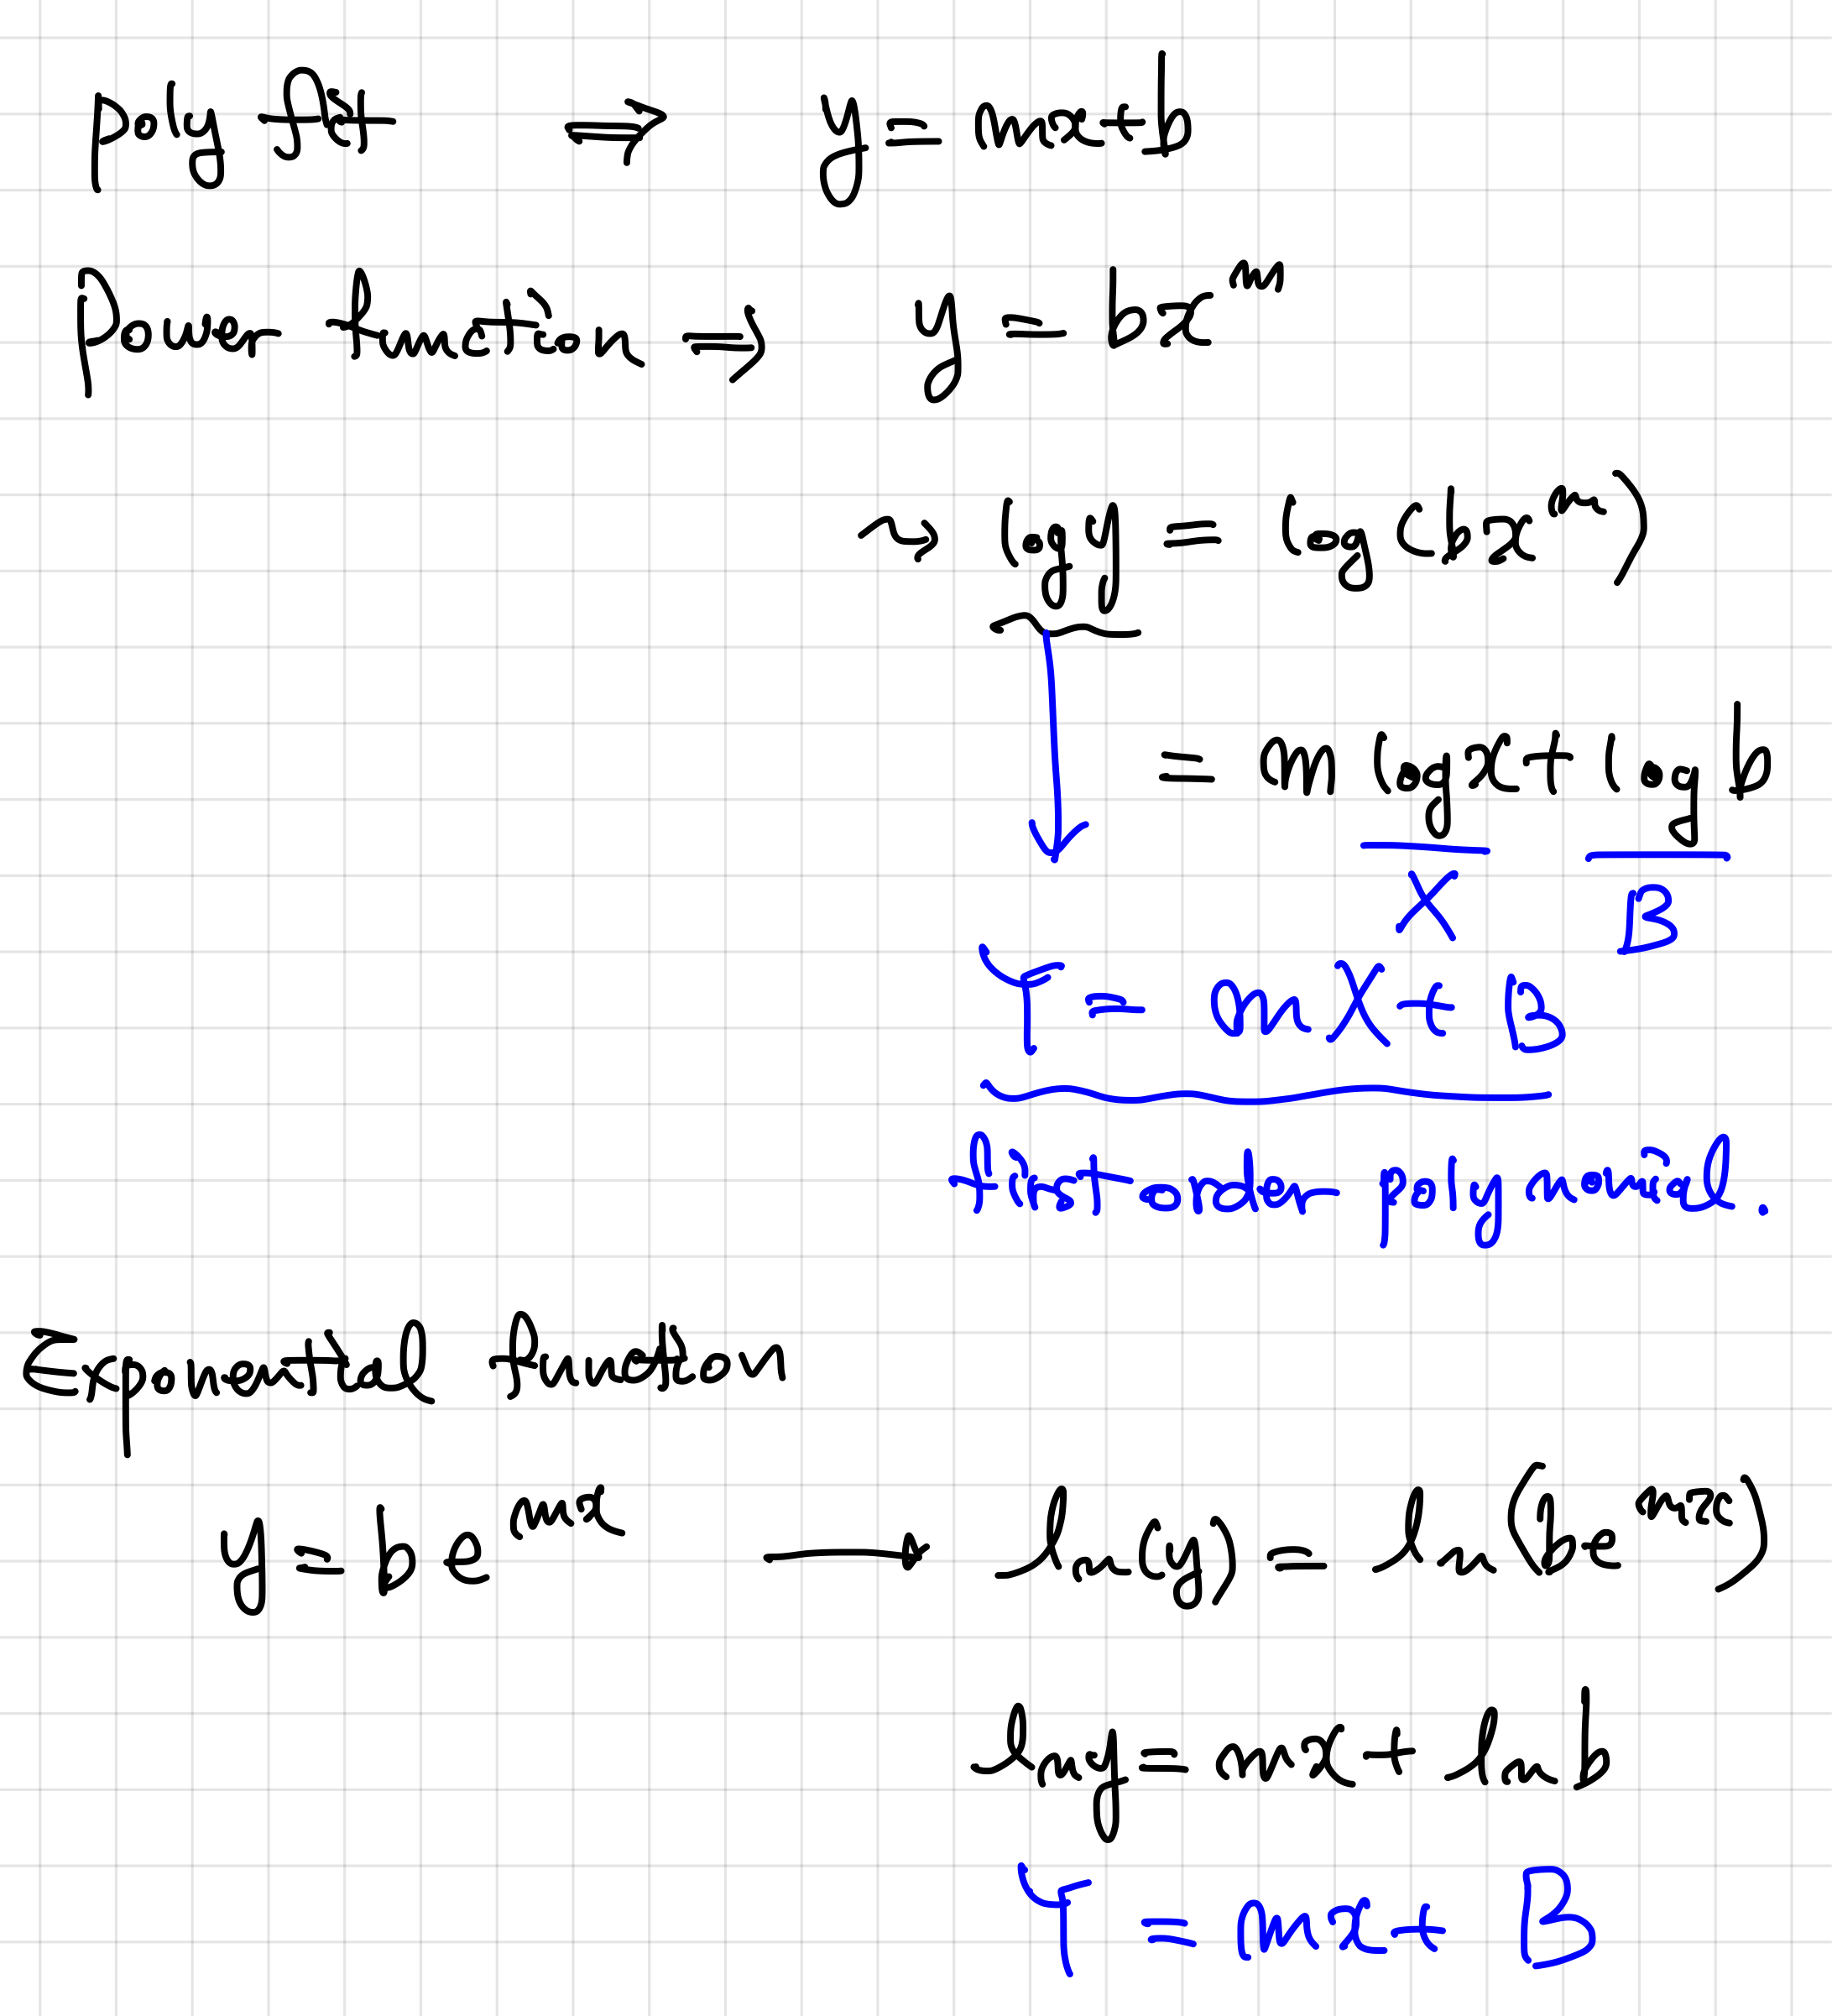 poly fit ⇒ y = mx+b
Power function ⇒ y = bx^m
~> log y = log(bx^m)
= m log x + log b
X B
Y = mX + B
first order polynomial.
Exponential function
y = be^mx → ln(y) = ln(be^mx)
ln y = mx + ln b
Y = mx + B